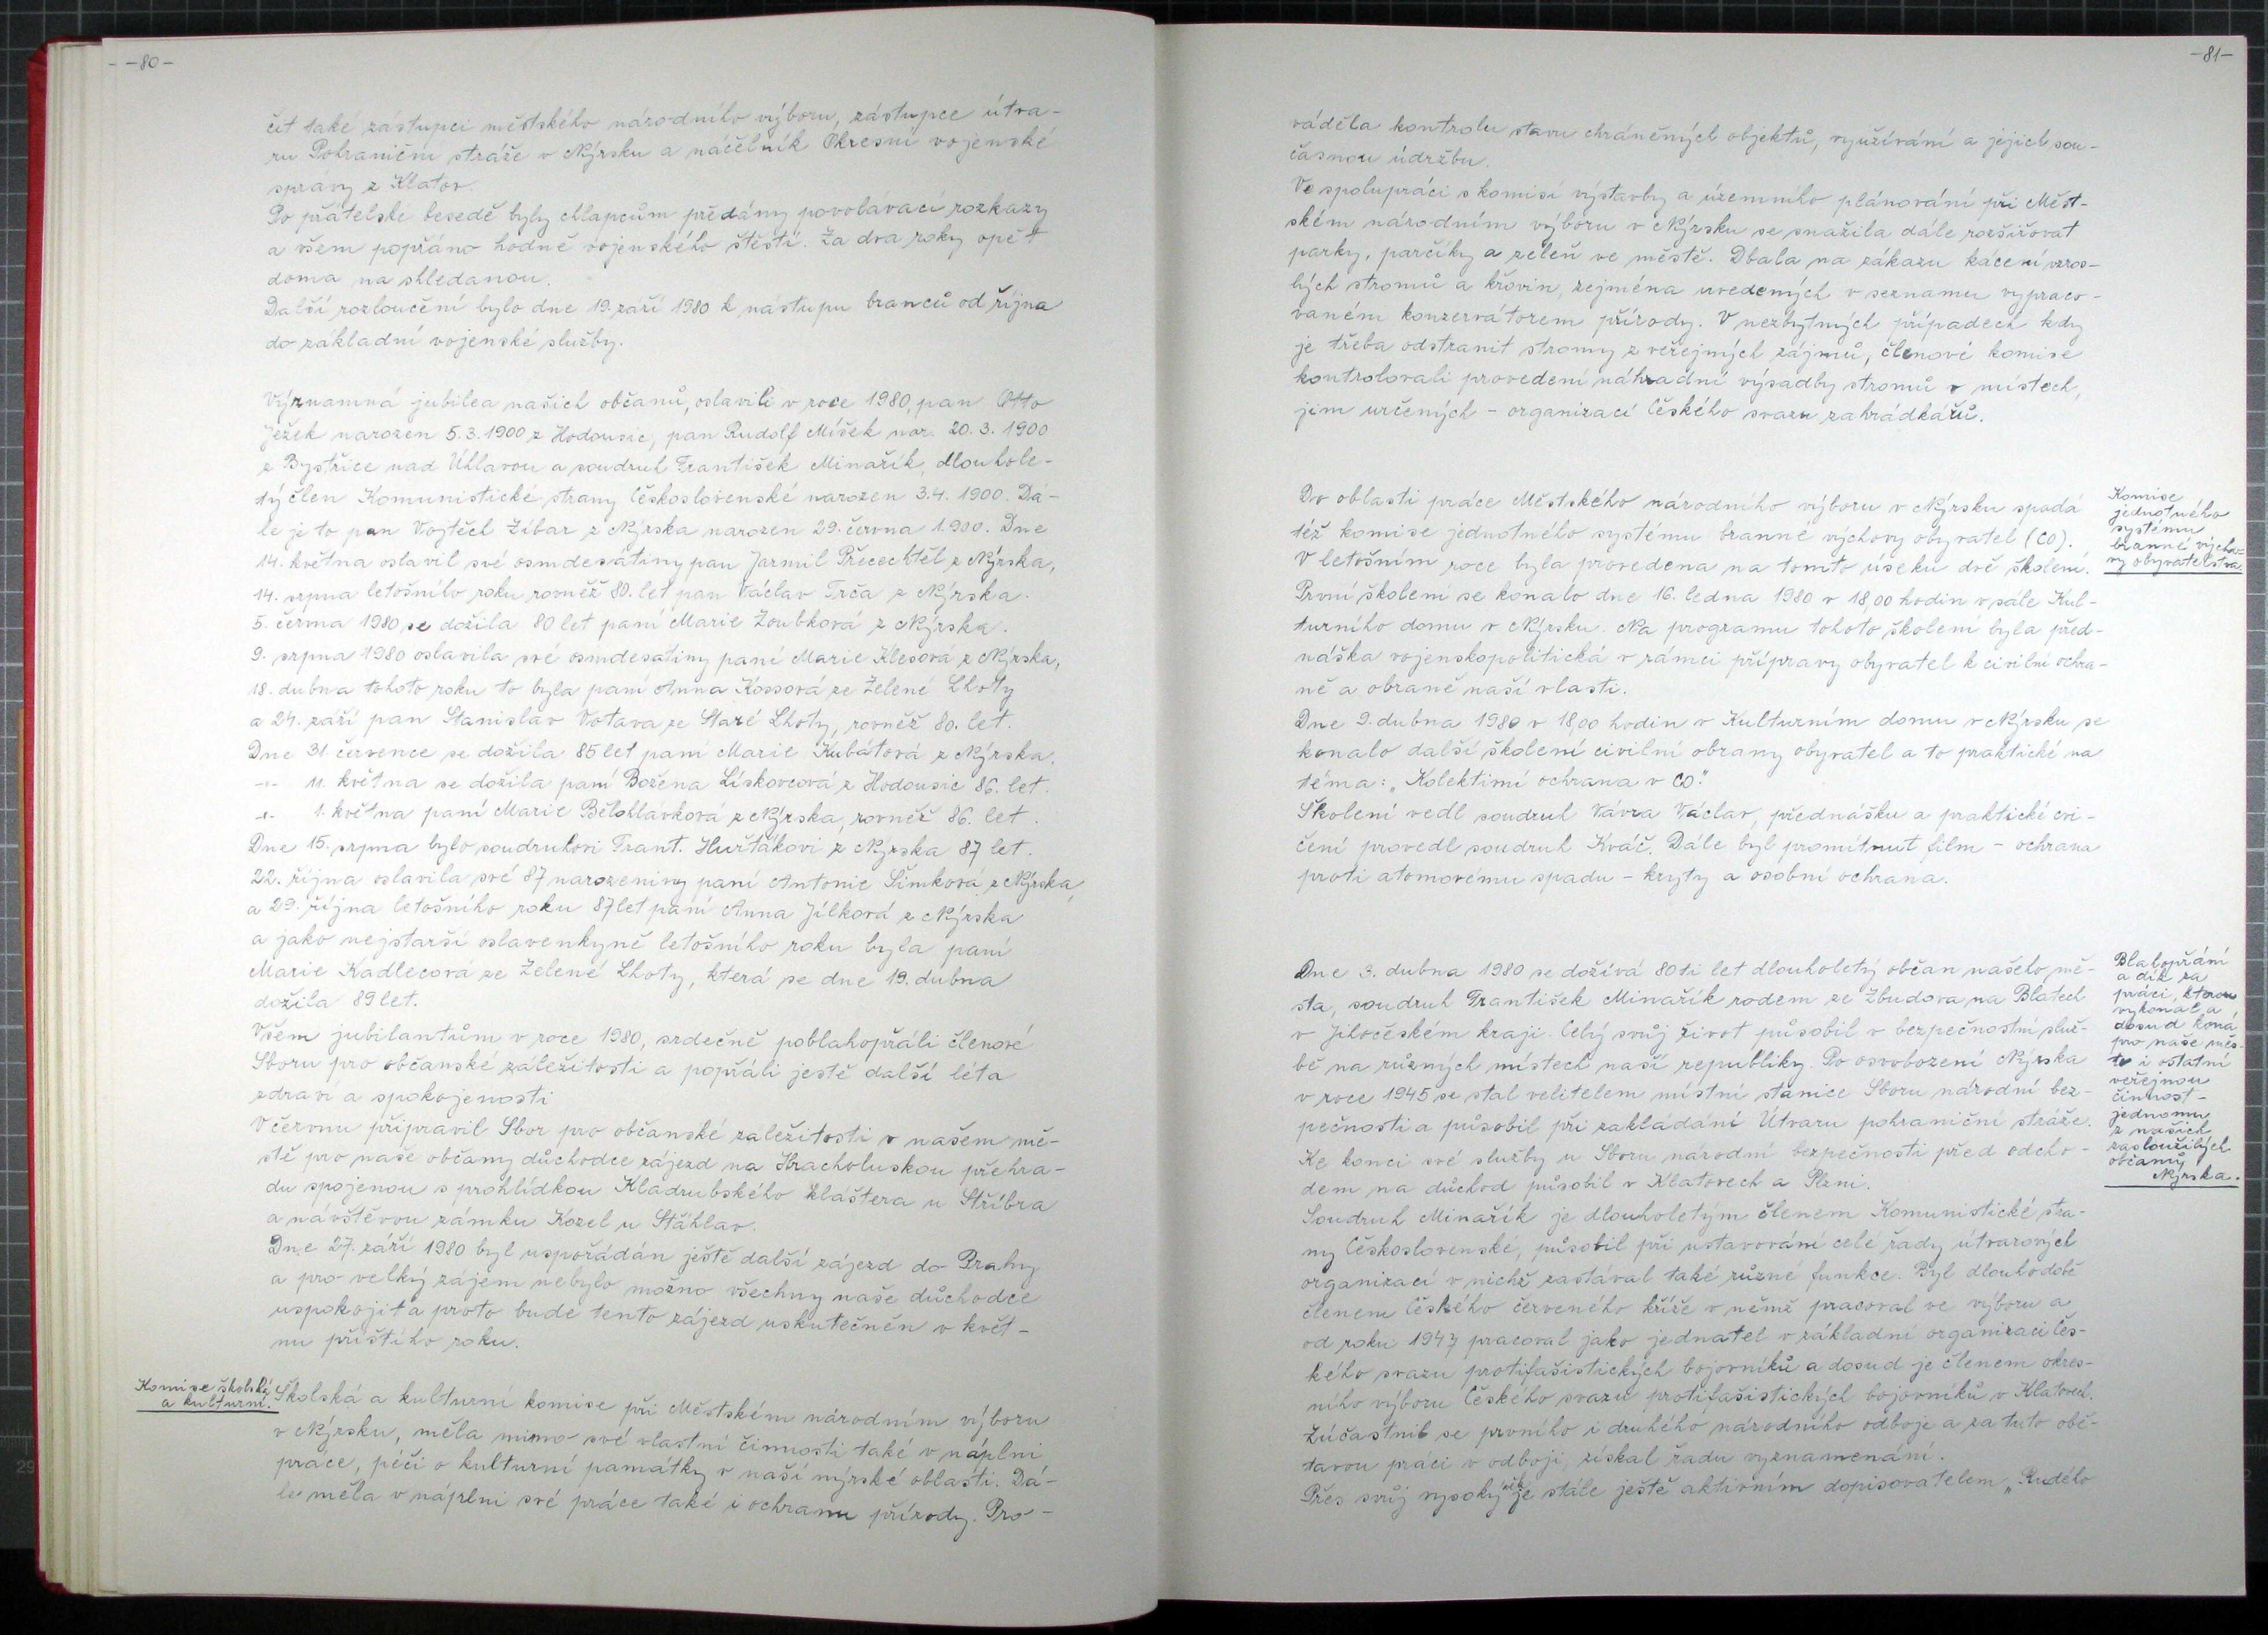 - -80-
čit také zástupci městského národního výboru, zástupce útva-
ru Pohraniční stráže v Nýrsku a náčelník Okresní vojenské
správy z Klatov.
Po přátelské besedě byly chlapcům předány povolávací rozkazy
a všem popřáno hodně vojenského štěstí. Za dva roky opět
doma na shledanou.
Další rozloučení bylo dne 19. září 1980 k nástupu branců od října
do základní vojenské služby.
Významná jubilea našich občanů, oslavili v roce 1980, pan Otto
Ježek narozen 5.3.1900 z Hodousic, pan Rudolf Míšek nar. 20.3.1900
z Bystřice nad Úhlavou a soudruh František Minařík, dlouhole-
tý člen Komunistické strany Československé narozen 3.4.1900. Dá-
le je to pan Vojtěch Zíbar z Nýrska narozen 29. června 1.900. Dne
14. května oslavil své osmdesátiny pan Jarmil Přecechtěl z Nýrska,
14. srpna letošního roku rovněž 80. let pan Václav Trča z Nýrska.
5. června 1980 se dožila 80 let paní Marie Zoubková z Nýrska.
9. srpna 1980 oslavila své osmdesátiny paní Marie Klesová z Nýrska,
18. dubna tohoto roku to byla paní Anna Kossová ze Zelené Lhoty
a 24. září pan Stanislav Votava ze Staré Lhoty, rovněž 80. let.
Dne 31. července se dožila 85 let paní Marie Kubátová z Nýrska.
-"- 11. května se dožila paní Božena Lískovcová z Hodousic 86. let.
-"- 1. května paní Marie Bělohlávková z Nýrska, rovněž 86. let.
Dne 15. srpna bylo soudruhovi Frant. Huřťákovi z Nýrska 87 let.
22. října oslavila své 87 narozeniny paní Antonie Šimková z Nýrska,
a 29. října letošního roku 87 let paní Anna Jílková z Nýrska
a jako nejstarší oslavenkyně letošního roku byla paní
Marie Kadlecová ze Zelené Lhoty, která se dne 19. dubna
dožila 89 let.
Všem jubilantům v roce 1980, srdečně poblahopřáli členové
Sboru pro občanské záležitosti a popřáli ještě další léta
zdraví a spokojenosti
V červnu připravil Sbor pro občanské záležitosti v našem mě-
stě pro naše občany důchodce zájezd na Hracholuskou přehra-
du spojenou s prohlídkou Kladrubského kláštera u Stříbra
a návštěvou zámku Kozel u Šťáhlav.
Dne 27. září 1980 byl uspořádán ještě další zájezd do Prahy
a pro velký zájem nebylo možno všechny naše důchodce
uspokojit a proto bude tento zájezd uskutečněn v květ-
nu příštího roku.
Komise školská
a kulturní.
Školská a kulturní komise při Městském národním výboru
v Nýrsku, měla mimo své vlastní činnosti také v náplni
práce, péči o kulturní památky v naší nýrské oblasti. Dá-
le měla v náplni své práce také i ochranu přírody. Pro-
-81-
váděla kontrolu stavu chráněných objektů, využívání a jejich sou-
časnou údržbu.
Ve spolupráci s komisí výstavby a územního plánování při Měst-
ském národním výboru v Nýrsku se snažila dále rozšiřovat
parky, parčíky a zeleň ve městě. Dbala na zákazu kácení vzros-
lých stromů a křovin, zejména uvedených v seznamu vypraco-
vaném konzervátorem přírody. V nezbytných případech kdy
je třeba odstranit stromy z veřejných zájmů, členové komise
kontrolovali provedení náhradní výsadby stromů v místech,
jim určených - organizací Českého svazu zahrádkářů.
Do oblasti práce Městského národního výboru v Nýrsku spadá
též komise jednotného systému branné výchovy obyvatel (CO).
V letošním roce byla provedena na tomto úseku dvě školení.
První školení se konalo dne 16. ledna 1980 v 18,00 hodin v sále Kul-
turního domu v Nýrsku. Na programu tohoto školení byla před-
náška vojenskopolitická v rámci přípravy obyvatel k civilní ochra-
ně a obraně naší vlasti.
Dne 9. dubna 1980 v 18,00 hodin v Kulturním domu v Nýrsku se
konalo další školení civilní obrany obyvatel a to praktické na
téma: "Kolektivní ochrana v CO."
Školení vedl soudruh Vávra Václav, přednášku a praktické cvi-
čení provedl soudruh Kváč. Dále byl promítnut film - ochrana
proti atomovému spadu - kryty a osobní ochrana.
Komise
jednotného
systému
branné výcho-
vy obyvatelstva.
Dne 3. dubna 1980 se dožívá 80ti let dlouholetý občan našeho mě-
sta, soudruh František Minařík rodem ze Zbudova na Blatech
v Jihočeském kraji. Celý svůj život působil v bezpečnostní služ-
bě na různých místech naší republiky. Po osvobození Nýrska
v roce 1945 se stal velitelem místní stanice Sboru národní bez-
pečnosti a působil při zakládání Útvaru pohraniční stráže.
Ke konci své služby u Sboru národní bezpečnosti před odcho-
dem na důchod působil v Klatovech a Plzni.
Soudruh Minařík je dlouholetým členem Komunistické stra-
ny Československé, působil při ustavování celé řady útvarových
organizací v nichž zastával také různé funkce. Byl dlouhodobě
členem Českého červeného kříže v němž pracoval ve výboru a
od roku 1947 pracoval jako jednatel v základní organizaci Čes-
kého svazu protifašistických bojovníků a dosud je členem okres-
ního výboru Českého svazu protifašistických bojovníků v Klatovech.
Zúčastnil se prvního i druhého národního odboje a za tuto obě-
tavou práci v odboji, získal řadu vyznamenání.
Přes svůj vysoký věk je stále ještě aktivním dopisovatelem "Rudého
Blahopřání
a dík za
práci, kterou
vykonal a
dosud koná
pro naše měs-
to i ostatní
veřejnou
činnost -
jednomu
z našich
zasloužilých
občanů
Nýrska.